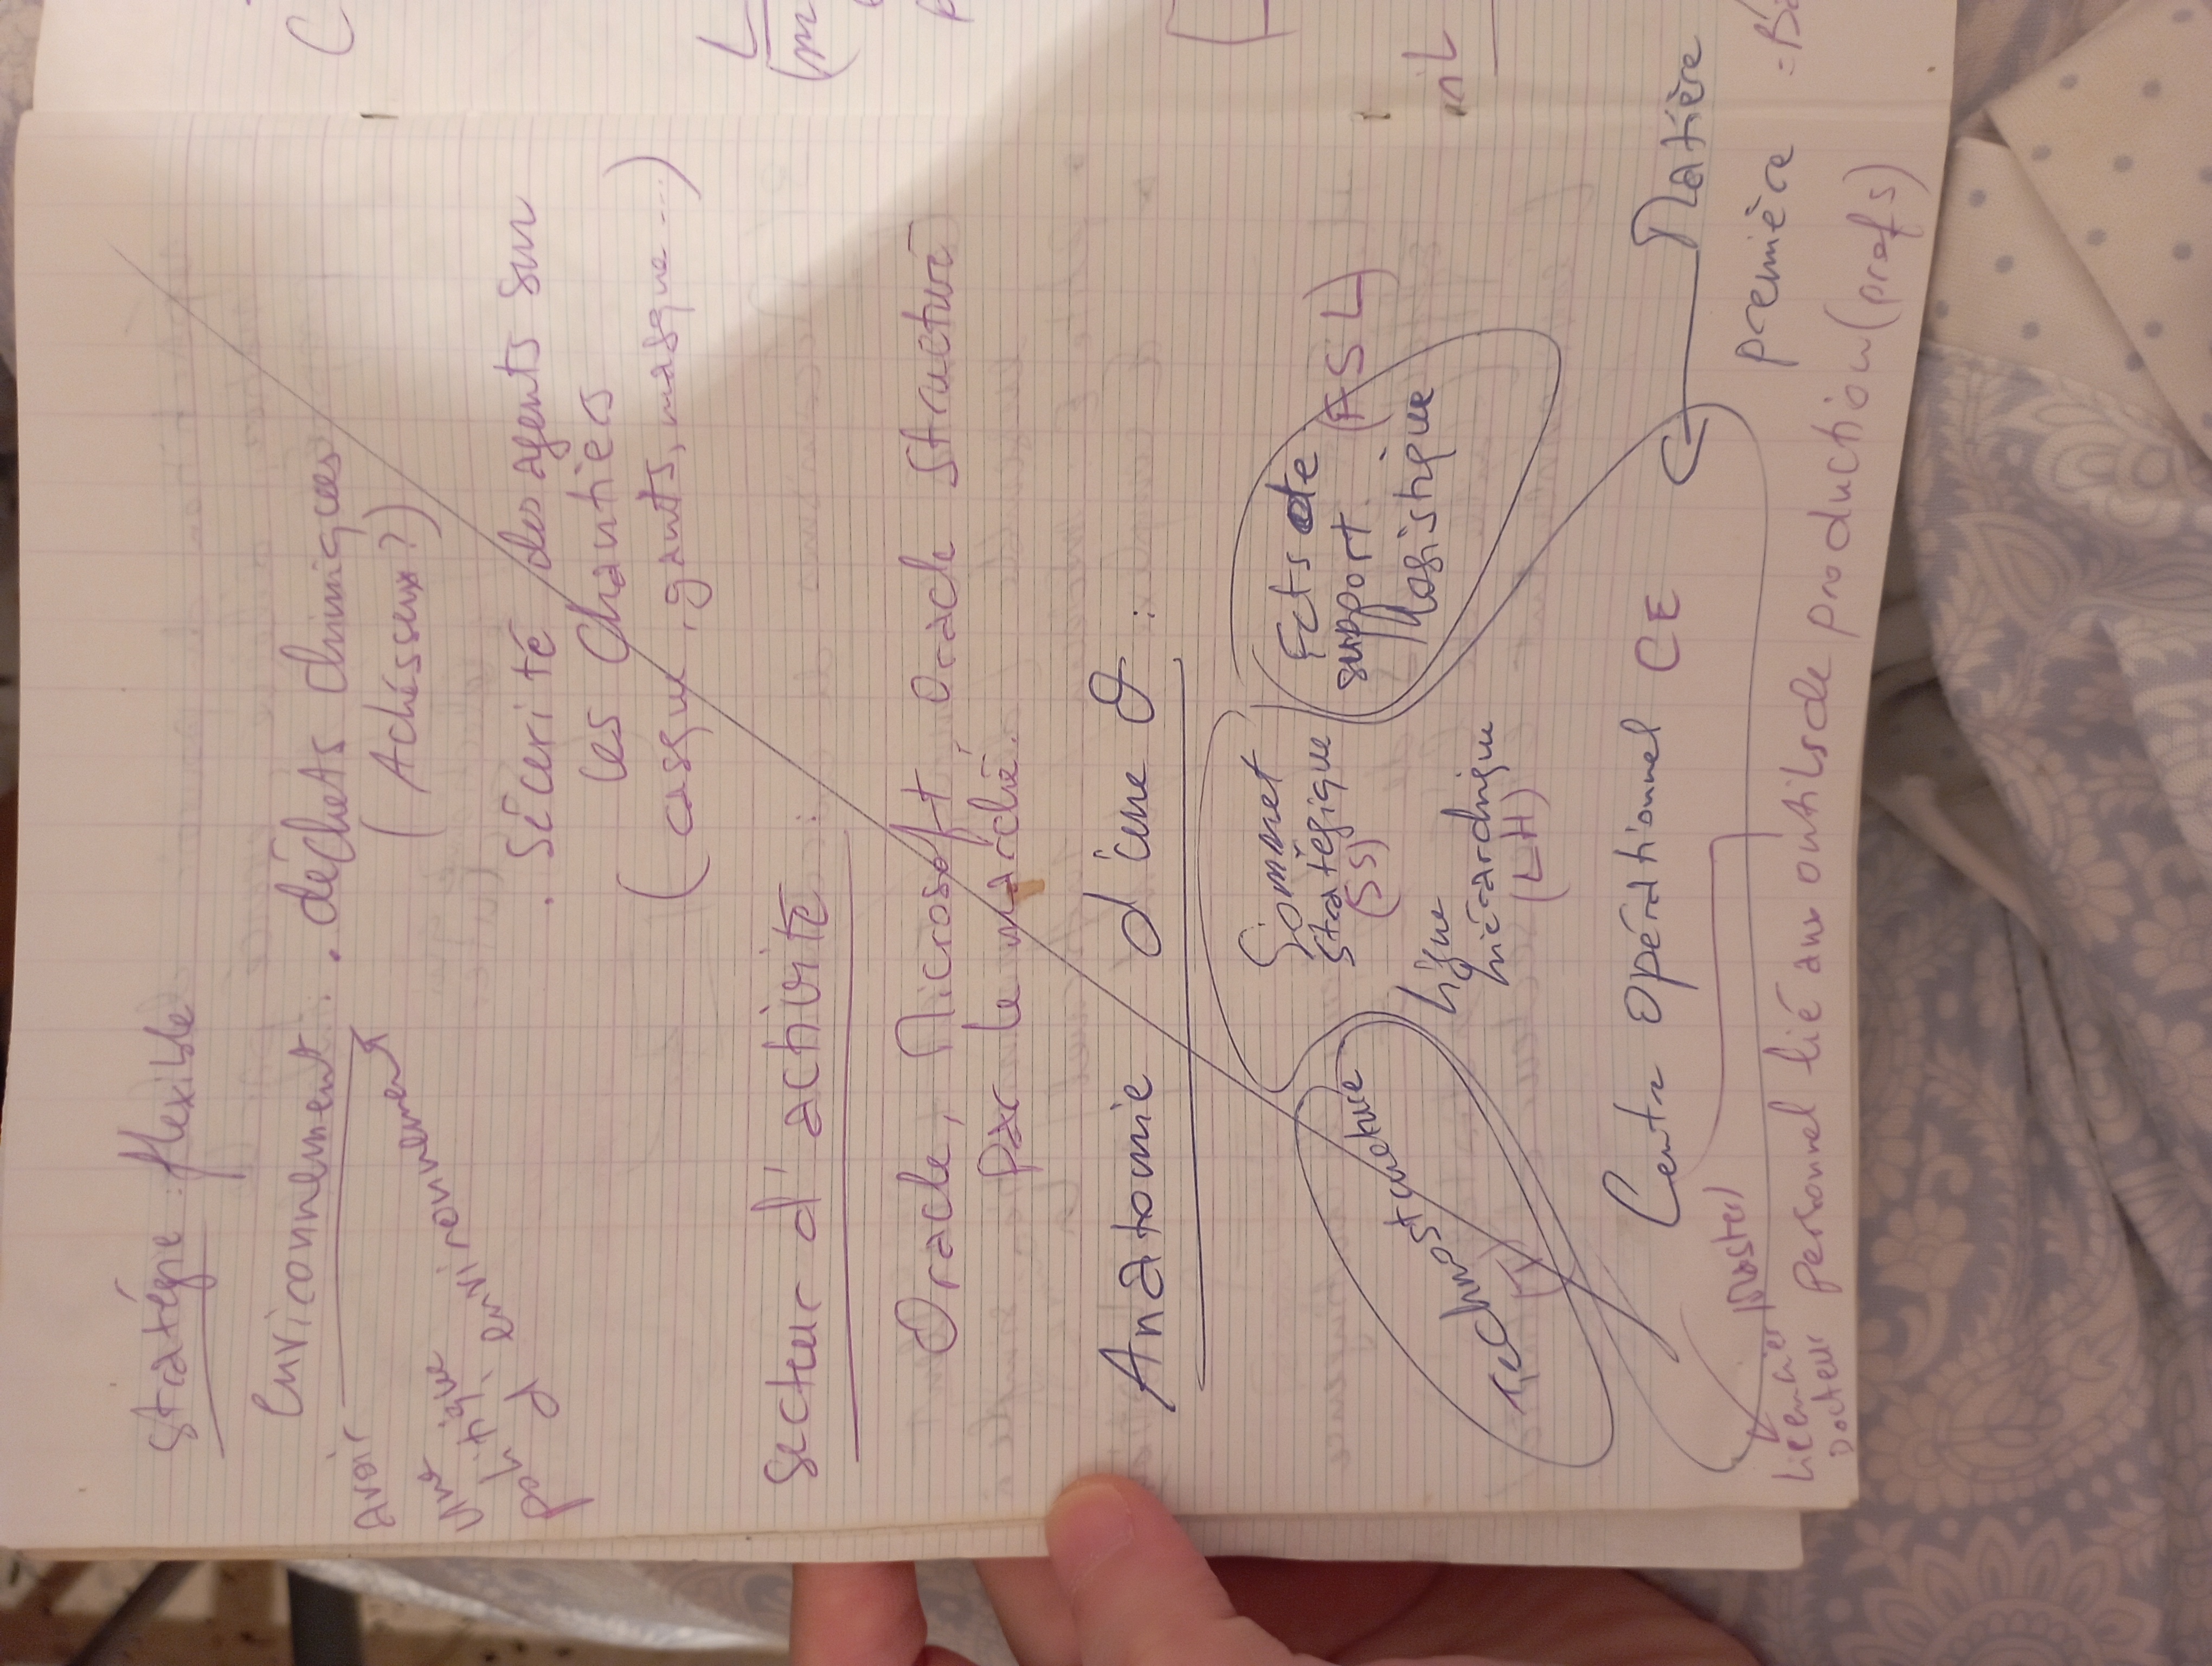 Stratégie : flexible
Environnement : . déchets chimiques
avoir
une
politique
d'environnement
(Achésseux?)
. Sécerité des agents sur
les Chantiers
(casque, gants, masque ...)
Secteur d'activité :
Oracle, Microsoft, Oracle structuré
par le marché.
Anatomie d'une O :
Sommet
stratégique
(SS)
Technostructure
(T)
Fcts de
support
logistique
(FSL)
ligne
hiérarchique
(LH)
Centr Opérationnel CE
Matière
première
Docteur
personnel lié aux outils de production (profs)